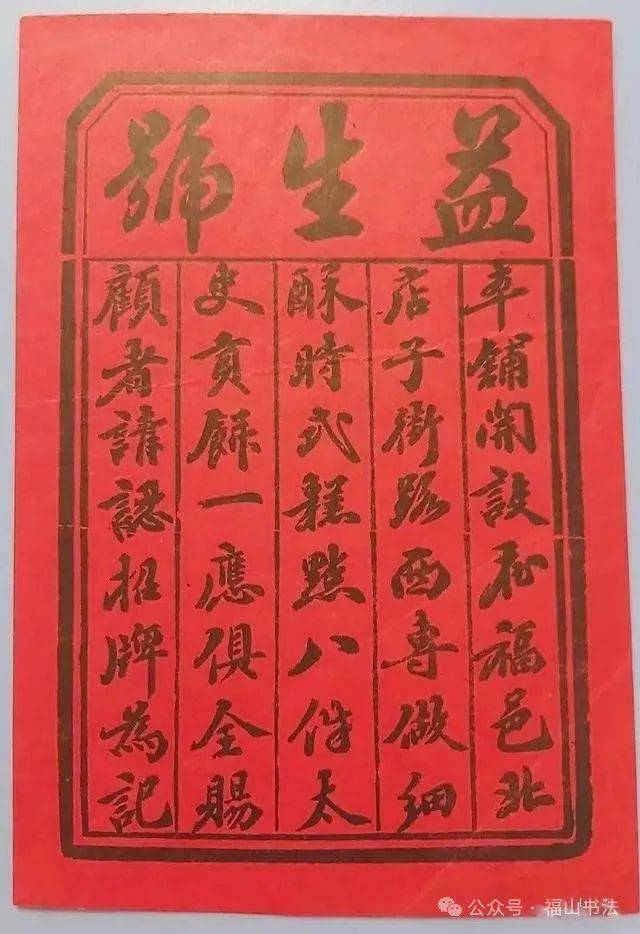 益生號
本舖開設在福邑北
店子街路西專做細
酥時式糕點八件太
史貢餅一應俱全賜
顧者請認招牌為記
公众号·福山书法